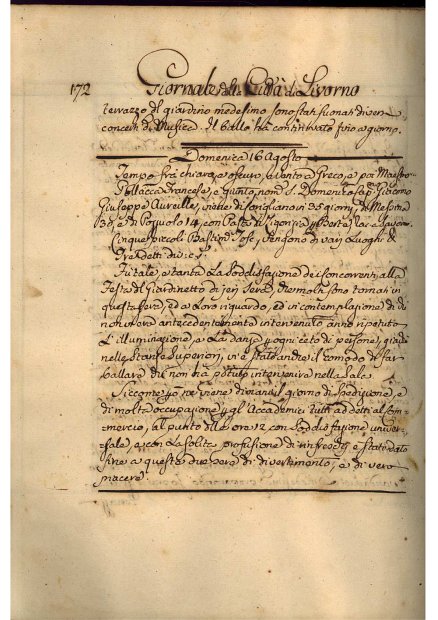 172 Giornale della Città di Livorno
terrazzo del giardino medesimo sono stati suonati diversi
concerti di Musica. Il ballo ha continuato fino a giorno.
Domenica 16 Agosto
Tempo frà chiaro, e oscuro, e vento a Greco, e poi Maestro
Pollacca Francese, e quinto, nom. S. Domenico, Cap. Giacomo
Giuseppe Aureille, viene di in 25 giorni, di Messina
e di Pozzuolo 14, con
Cinque piccoli Bastim.ti Tosc. vengono di varj Luoghi
Fù tale, e tanta la soddisfazione dei concorrenti alla
Festa del Giardinetto di jeri sera, che molti sono tornati in
questa sera, ed a loro riguardo, ed in contemplazione di chi
non vi era antecedentemente intervenuto anno ripetuto
L'illuminazione, e La danza p ogni ceto di persone, giacchè
nelle Stanze Superiori, vi è stato anche il comodo di far
ballare chi non hà potuto intervenire nella Sala.
Siccome poi ne viene dimani il giorno di Spedizione, e
di molta occupazione p gl'Accademici tutti addetti al Com-
mercio, al punto delle ore 12 con soddisfazione univer-
sale, e con La solita profusione di rinfreschi è stato dato
fine a queste due sere di divertimento, e di vero
piacere.